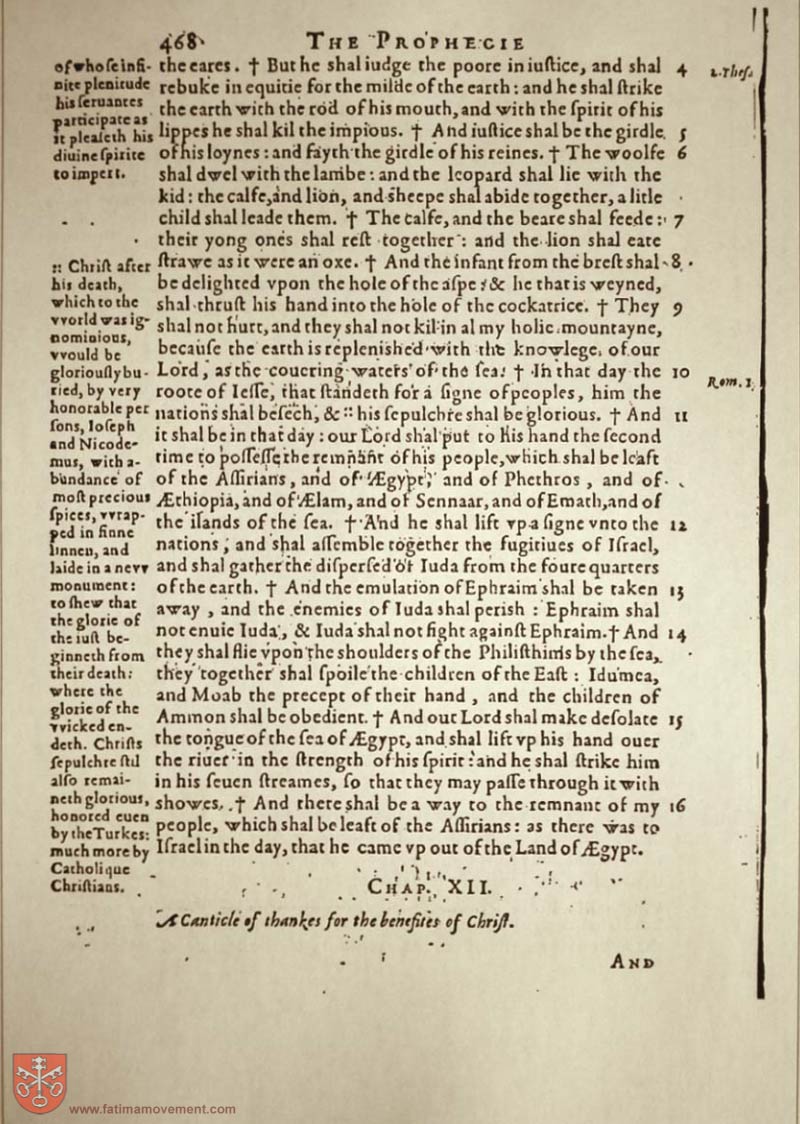 468
THE PROPHECIE
of whose infi-
nite plenitude
his seruantes
participate as
it pleaseth his
diuine spirite
to impert.
:: Christ after
his death,
which to the
vvorld was ig-
nominious,
vvould be
gloriously bu-
ried, by very
honorable per
sons, Ioseph
and Nicode-
mus, with a-
bundance of
most precious
spices, vvrap-
ped in finne
linnen, and
laide in a nevv
monument:
to shew that
the glorie of
the iust be-
ginneth from
their death:
where the
glorie of the
vvicked en-
deth. Christs
sepulchre stil
also remai-
neth glorious,
honored euen
by the Turkes:
much more by
Catholique
Christians.
the eares. † But he shal iudge the poore in iustice, and shal 4
rebuke in equitie for the milde of the earth: and he shal strike
the earth with the rod of his mouth, and with the spirit of his
lippes he shal kil the impious. † And iustice shal be the girdle 5
of his loynes: and fayth the girdle of his reines. † The woolfe 6
shal dwel with the lambe: and the leopard shal lie with the
kid: the calfe, and lion, and sheepe shal abide together, a litle
child shal leade them. † The calfe, and the beare shal feede: 7
their yong ones shal rest together: and the lion shal eate
strawe as it were an oxe. † And the infant from the brest shal 8
be delighted vpon the hole of the aspe: & he that is weyned,
shal thrust his hand into the hole of the cockatrice. † They 9
shal not hurt, and they shal not kil in al my holie mountayne,
because the earth is replenished with the knowlege of our
Lord, as the couering waters of the sea. † In that day the 10
roote of Iesse, that standeth for a signe of peoples, him the
nations shal besech, & :: his sepulchre shal be glorious. † And 11
it shal be in that day: our Lord shal put to his hand the second
time to possesse the remnant of his people, which shal be leaft
of the Assirians, and of Ægypt, and of Phethros, and of
Æthiopia, and of Ælam, and of Sennaar, and of Emath, and of
the ilands of the sea. † And he shal lift vp a signe vnto the 12
nations, and shal assemble together the fugitiues of Israel,
and shal gather the dispersed of Iuda from the foure quarters
of the earth. † And the emulation of Ephraim shal be taken 13
away, and the enemies of Iuda shal perish: Ephraim shal
not enuie Iuda, & Iuda shal not fight against Ephraim. † And 14
they shal flie vpon the shoulders of the Philisthiims by the sea,
they together shal spoile the children of the East: Idumea,
and Moab the precept of their hand, and the children of
Ammon shal be obedient. † And our Lord shal make desolate 15
the tongue of the sea of Ægypt, and shal lift vp his hand ouer
the riuer in the strength of his spirit: and he shal strike him
in his seuen streames, so that they may passe through it with
showes. † And there shal be a way to the remnant of my 16
people, which shal be leaft of the Assirians: as there was to
Israel in the day, that he came vp out of the Land of Ægypt.
2. Thes.
Rom. 1
CHAP. XII.
A Canticle of thankes for the benefites of Christ.
AND
www.fatimamovement.com